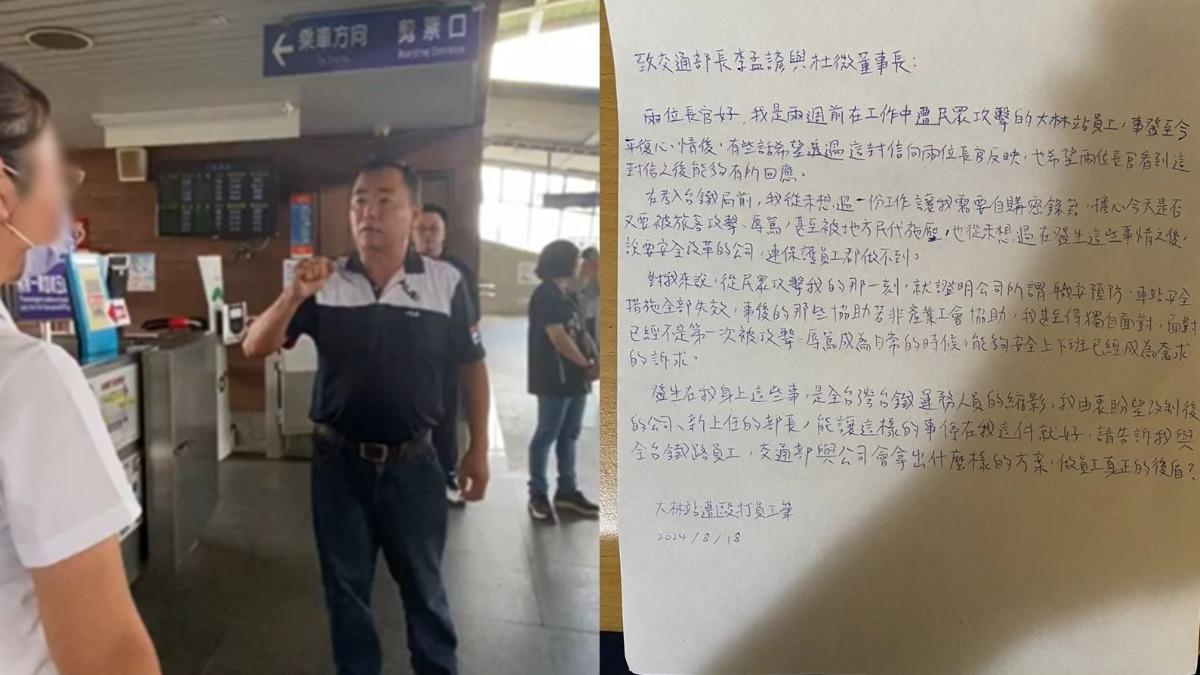 乘車方向
剪票口
Boarding Entrance
致交通部長李孟諺與杜微董事長：
兩位長官好，我是兩週前在工作中遭民眾攻擊的大林站員工，事發至今
平復心情後，有些話希望透過這封信向兩位長官反映，也希望兩位長官看到這
封信之後能夠有所回應。
在考入台鐵局前，我從未想過一份工作讓我需要自購密錄器，擔心今天是否
又要被旅客攻擊、辱罵，甚至被地方民代施壓，也從未想過在發生這些事情之後，
說要安全改革的公司，連保護員工都做不到。
對我來說，從民眾攻擊我的那一刻，就證明公司所謂職安預防、車站安全
措施全部失效，事後的那些協助若非產業工會協助，我甚至得獨自面對，面對
已經不是第一次被攻擊、辱罵成為日常的時候，能夠安全上下班已經成為奢求
的訴求。
發生在我身上這些事，是全台灣台鐵運務人員的縮影，我由衷盼望改制後
的公司、新上任的部長，能讓這樣的事停在我這件就好，請告訴我與
全台鐵路員工，交通部與公司會拿出什麼樣的方案，做員工真正的後盾？
大林站遭毆打員工筆
2024/8/18